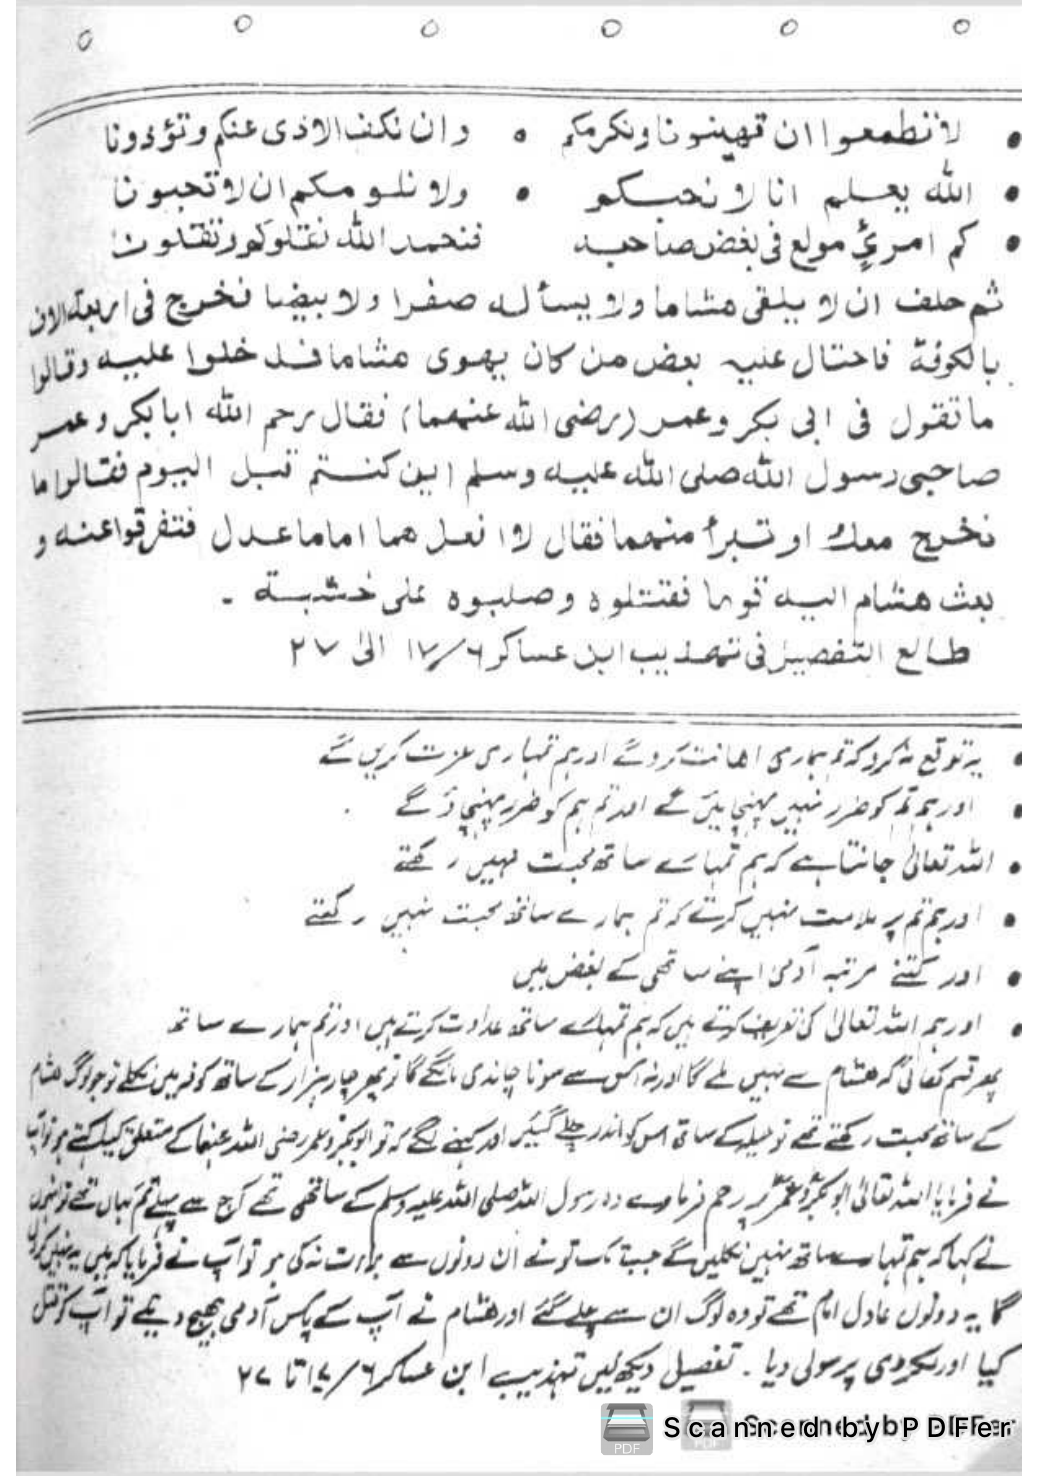 لا تطمعوا ان تهينونا ونكرمكم • وان نكف الاذى عنكم وتؤذونا
الله يعلم انا لا نحبكم • ولا نلومكم ان لا تحبونا
كم امرئ مولع فى بغض صاحبه فنحمد الله نقلوكم وتقلونا
ثم حلف ان لا يلقى هشاما ولا يسأله صفرا ولا بيضا فخرج فى اربعة الاف
بالكوفة فاحتال عليه بعض من كان يهوى هشاما فدخلوا عليه وقالوا
ما تقول فى ابى بكر وعمر (رضى الله عنهما) فقال رحم الله ابا بكر وعمر
صاحبى رسول الله صلى الله عليه وسلم اين كنتم قبل اليوم فقالوا ما
نخرج معك او تتبرأ منهما فقال لا افعل هما اماما عدل فتفرقوا عنه و
بعث هشام اليه قوما فقتلوه وصلبوه على خشبة ۔
طالع التفصيل فى تهذيب ابن عساكر ۶/۱۷ الى ۲۷
یہ توقع نہ کرو کہ تم ہماری اھانت کرو گے اور ہم تمہاری عزت کریں گے
اور ہم تم کو ضرر نہیں پہنچائیں گے اور تم ہم کو ضرر پہنچاؤ گے
اللہ تعالیٰ جانتا ہے کہ ہم تمہارے ساتھ محبت نہیں رکھتے
اور ہم تم پر ملامت نہیں کرتے کہ تم ہمارے ساتھ محبت نہیں رکھتے
اور کتنے مرتبہ آدمی اپنے ساتھی کے بغض میں
اور ہم اللہ تعالیٰ کی تعریف کرتے ہیں کہ ہم تمہارے ساتھ عداوت کرتے ہیں اور تم ہمارے ساتھ
پھر قسم کھائی کہ ھشام سے نہیں ملے گا اور نہ اس سے سونا چاندی مانگے گا تو پھر چار ہزار کے ساتھ کوفہ میں نکلے تو جو لوگ ھشام
کے ساتھ محبت رکھتے تھے تو حیلہ کے ساتھ اس کو اندر چلے گئیں اور کہنے لگے کہ تو ابوبکر و عمر رضی اللہ عنھما کے متعلق کیا کہتے ہو تو آپ
نے فرمایا اللہ تعالیٰ ابوبکرؓ و عمرؓ پر رحم فرماوے وہ رسول اللہ صلی اللہ علیہ وسلم کے ساتھی تھے کہ آج سے پہلے تم کہاں تھے تو انہوں
نے کہا کہ ہم تمہارے ساتھ نہیں نکلیں گے جب تک تو نے ان دونوں سے براءت نہ کی ہو تو آپ نے فرمایا کہ میں یہ نہیں کروں
گا یہ دونوں عادل امام تھے تو وہ لوگ ان سے چلے گئے اور ھشام نے آپ کے پاس آدمی بھیج دیئے تو آپ کو قتل
کیا اور لکڑی پر سولی دیا ۔ تفصیل دیکھ لیں تہذیب ابن عساکر ۶/۱۷ تا ۲۷
Scanned by PDFFer